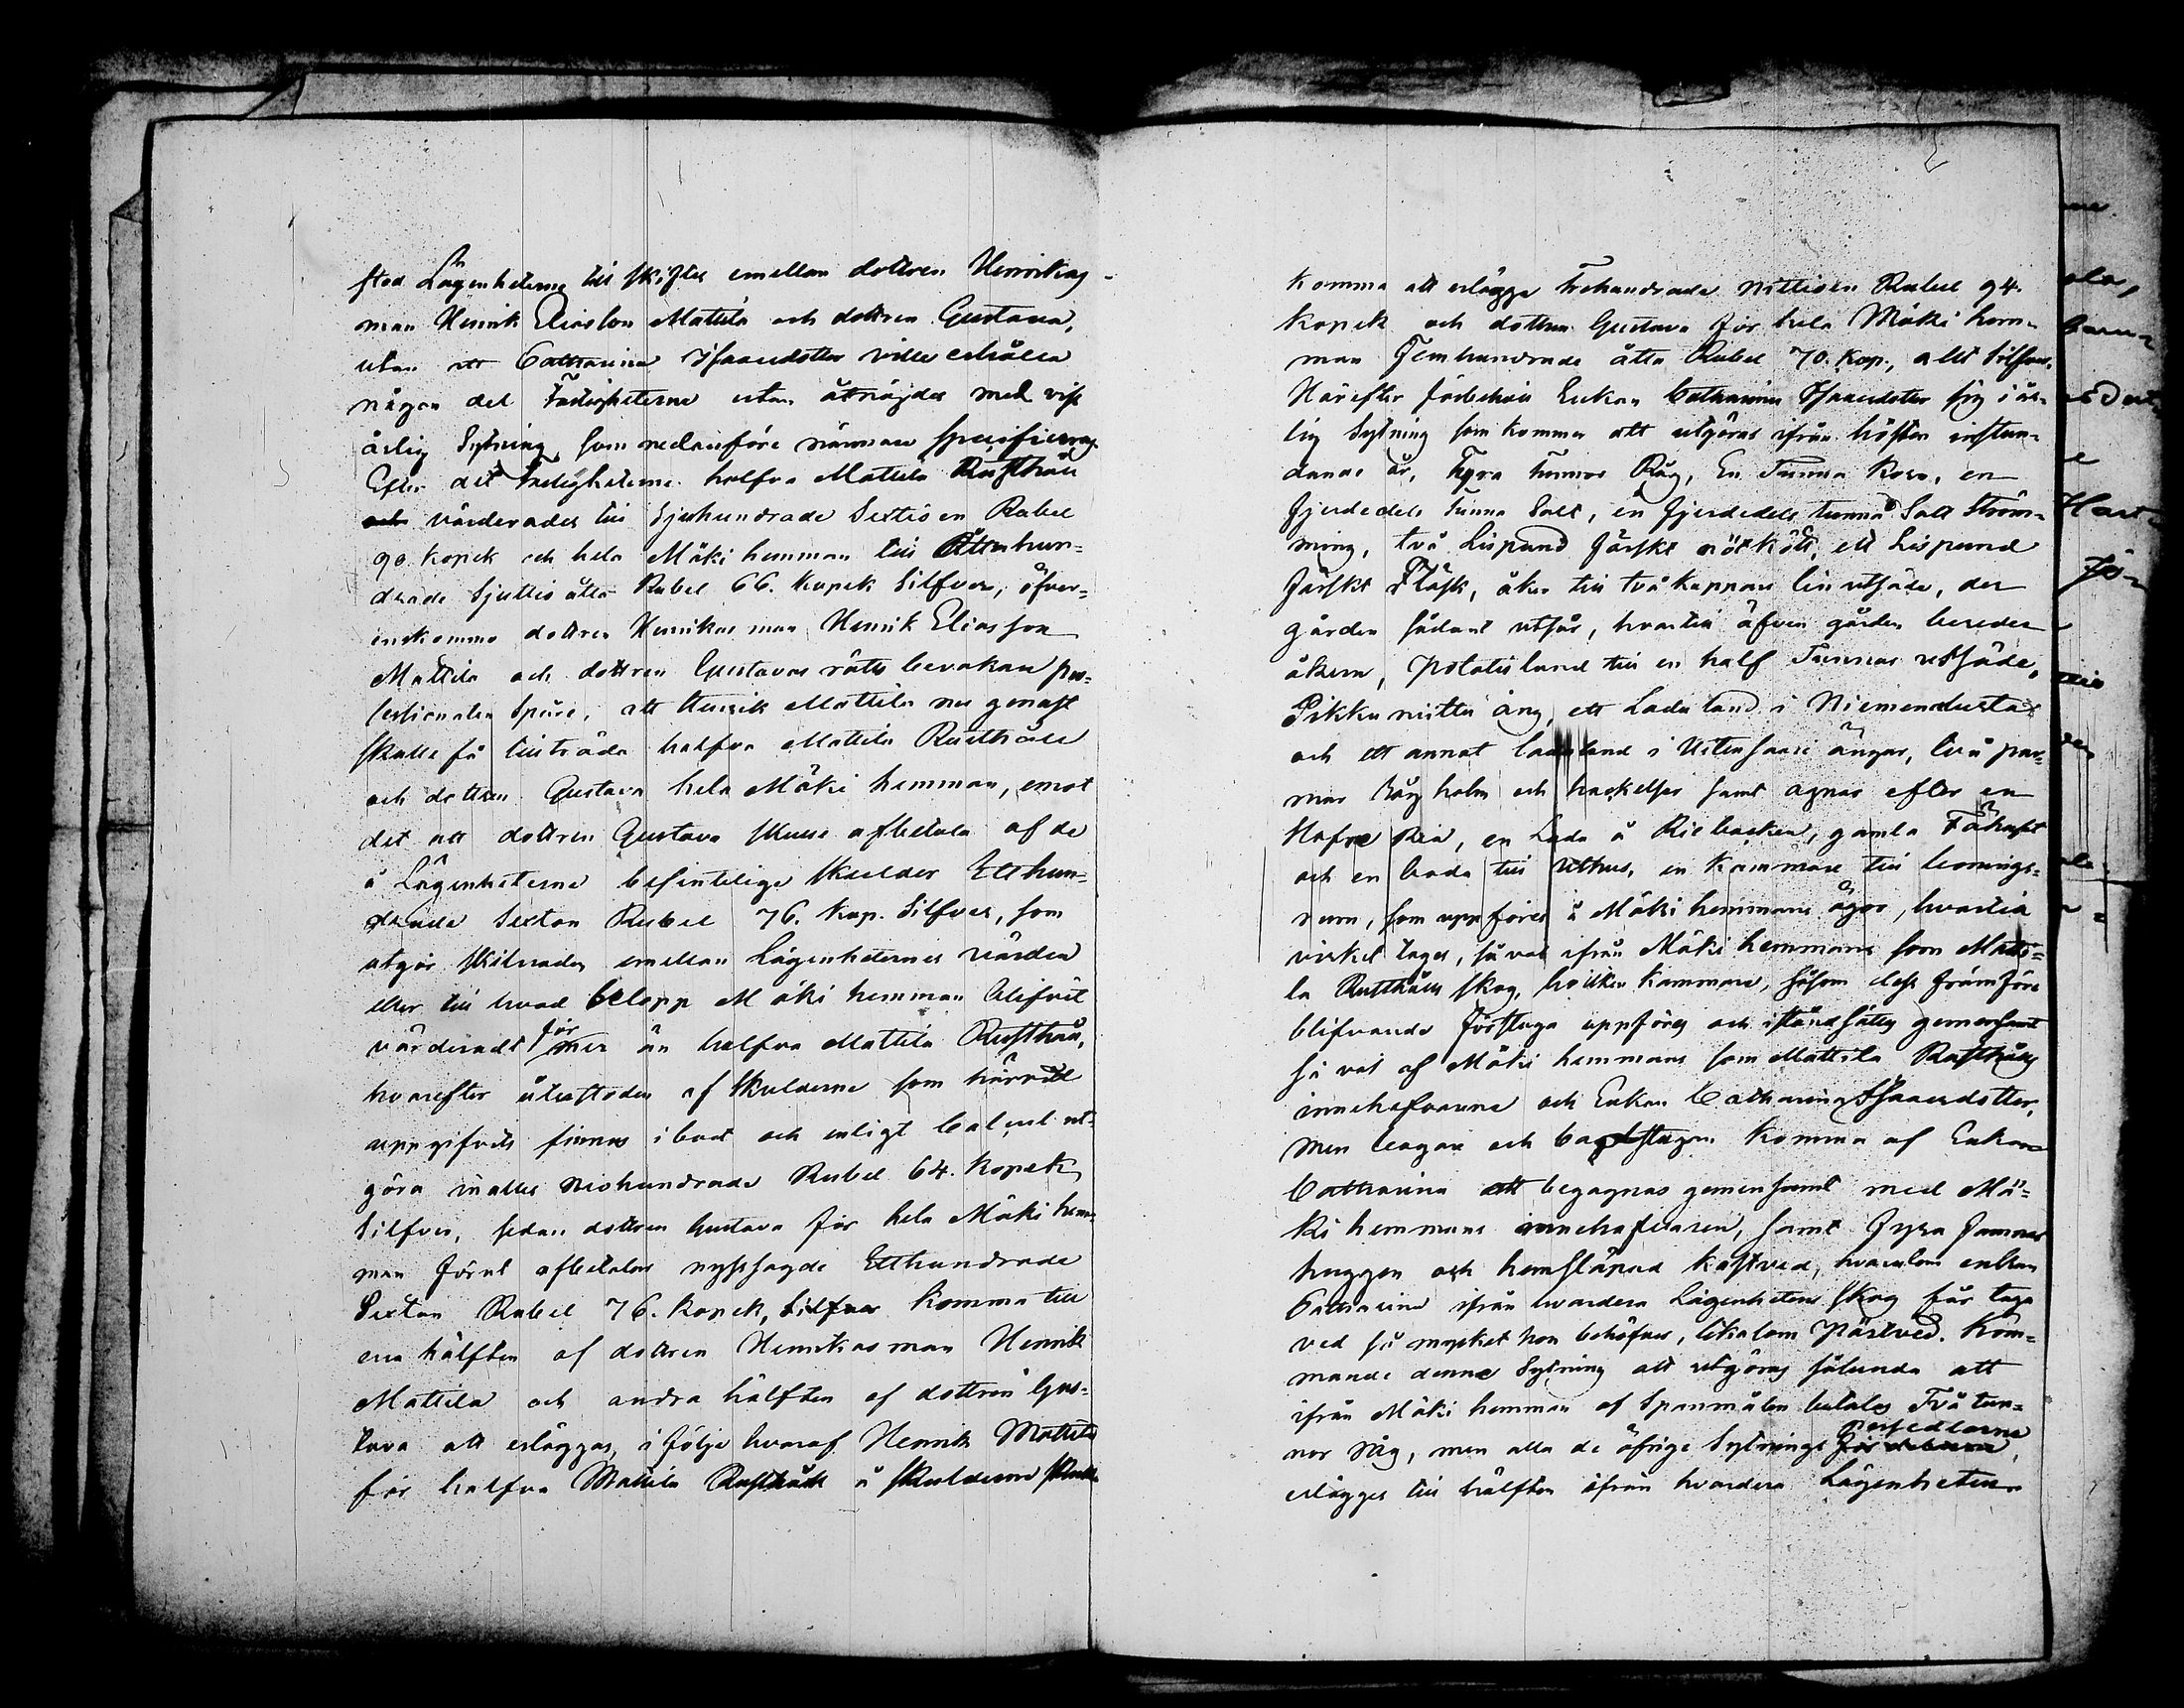 stod Lägenheterne till skiftes emellan dottren Henrikas
man Henrik Eliasson Mattila och dottren Gustava,
utan att Catharina Isaacsdotter ville erhålla
någon del Fastigheterne utan åtnöjdes med viss
årlig Sytning, som nedanföre närmare specifieras.
Efter det Fastigheterne halfva Mattila Rusthåll
och värderades till Sjuhundrade Sextio en Rubel
90. kopek och hela Mäki hemman till Åttahun-
drade Sjuttio åtta Rubel 66. kopek Silfver, öfver-
enskommo dottren Henrikas man Henrik Eliasson
Mattila och dottren Gustavas rätts bevakare pro-
fessionalen Spåre, att Henrik Mattila nu genast
skulle få tillträda halfva Mattila Rusthåll
och dottren Gustava hela Mäki hemman, emot
det att dottren Gustava skulle afbetala af de
å Lägenheterne befintelige skulder Etthun-
drade Sexton Rubel 76. Kop. Silfver, som
utgör skilnaden emellan Lägenheternes värden
eller till hvad belopp Mäki hemman blifvit
värderadt för mer än halfva Mattila Rusthåll,
hvarefter återstoden af skulderne som härvid
uppgifvits finnas i boet och enligt balance ut-
göra inalles Niohundrade Rubel 64. Kopek
Silfver, sedan dottren Gustava för hela Mäki hem-
man förut afbetalar nyssagde Etthundrade
Sexton Rubel 76. kopek, Silfver komma till
ena hälften af dottren Henrikas man Henrik
Mattila och andra hälften af dottren Gus-
tava att erläggas, i följe hvaraf Henrik Mattila
för halfva Mattila Rusthåll å skulderne skulle
komma att erlägga Trehundrade Nittioen Rubel 94.
Kopek och dottren Gustava för hela Mäki hem-
man Femhundrade åtta Rubel 70. Kop., allt Silfver.
Härefter förbehöll Enkan Catharina Isaacsdotter sig i år-
lig Sytning som kommer att utgöras ifrån hösten instun-
dande år, Fyra tunnor Råg, En Tunna Korn, en
fjerdedels Tunna Salt, en fjerdedels tunna Salt Ström-
ming, två Lispund färskt nötkött, ett Lispund
färskt Fläsk, åker till två kappars linutsäde, der
gården sådant utsår, hvartill äfven gården bereder
åkern, potatisland till en half Tunnas utsäde,
Pikku niittu äng, ett Ladu land i Niemenlusta
och ett annat laduland i Uitensaari ängar, två par-
mar Råg halm och hackelser samt agnar efter en
Hafre Ria, en Lada å Riebacken, gamla Fähuset
och en boda till Uthus, en kammare till bonings-
rum, som uppföres å Mäki hemmans ägor, hvartill
virket tages, så väl ifrån Mäki hemmans som Matti-
la Rusthålls skog, hvilken kammare, såsom dess framföre
blifvande förstuga uppföres och iståndsättes gemensamt
så väl af Mäki hemmans som Mattila Rusthålls
innehafvarene och Enkan Catharina Isaacsdotter,
men bagar och badstugan komma af Enkan
Catharina att begagnas gemensamt med Mä-
ki hemmans innehafvaren, samt fyra famnar
huggen och hemsläpad kastved, hvarutom enkan
Catharina ifrån hvardera Lägenhetens skog får taga
ved så mycket hon behöfver, likasom Pärtved. Kom-
mande denne Sytning att utgöras sålunda att
ifrån Mäki hemman af Spanmålen betalas Två tun-
nor Råg, men alla de öfrige Sytnings persedlarne
erlägges till hälften ifrån hvardera Lägenheten.